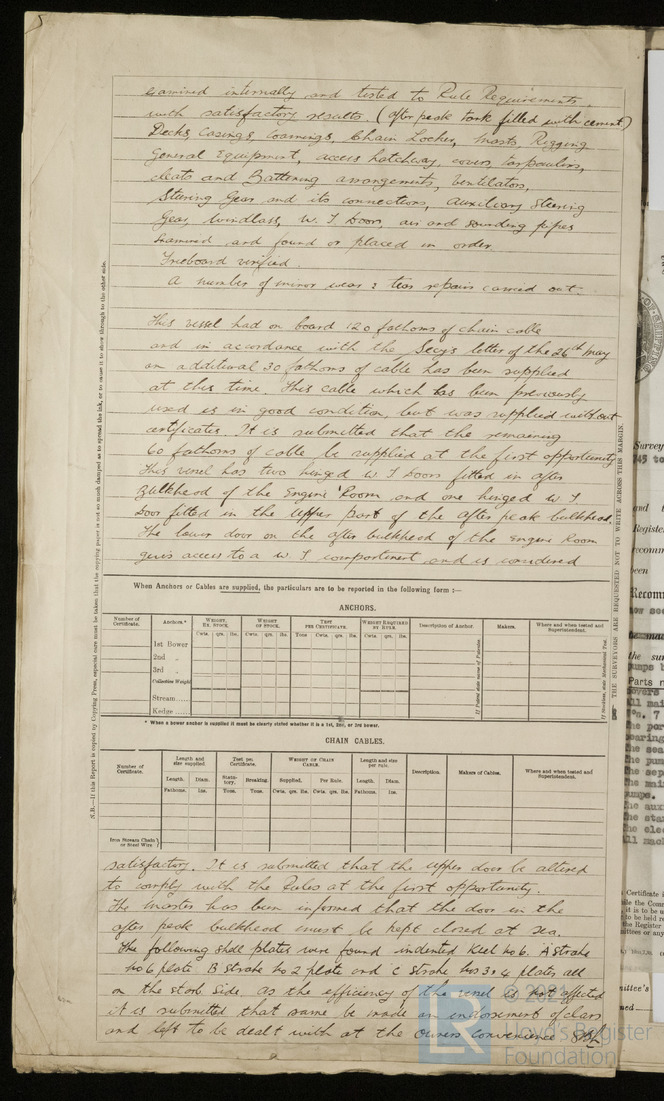 examined internally and tested to Rule Requirements
with satisfactory results. (after peak tank filled with cement)
Decks, Casings, Coamings, Chain Locker, Masts, Rigging
General Equipment, access hatchway, covers, tarpaulins,
cleats and Battening arrangements, Ventilators,
Steering Gear and its connections, auxiliary steering
Gear, Windlass, W. T Doors, air and sounding pipes
Examined and found or placed in order.
Freeboard verified.
A number of minor wear & tear repairs carried out.
This vessel had on board 120 fathoms of chain cable
and in accordance with the Secy's letter of the 26th May
an additional 30 fathoms of cable has been supplied
at this time. This cable which has been previously
used is in good condition, but was supplied without
certificates. It is submitted that the remaining
60 fathoms of cable be supplied at the first opportunity
This vessel has two hinged W. T Doors fitted in after
Bulkhead of the Engine Room and one hinged W. T
Door fitted in the upper part of the after peak bulkhead.
The lower door on the after bulkhead of the Engine Room
gives access to a W. T compartment and is considered
When Anchors or Cables are supplied, the particulars are to be reported in the following form :—
ANCHORS.
Number of Certificate. Anchors.* WEIGHT, EX. STOCK. WEIGHT OF STOCK. TEST PER CERTIFICATE. WEIGHT REQUIRED BY RULE. Description of Anchor. Makers. Where and when tested and Superintendent.
Cwts. qrs. lbs. Cwts. qrs. lbs. Tons Cwts. qrs. lbs. Cwts. qrs. lbs.
1st Bower
2nd „
3rd „
Collective Weight
Stream
Kedge
* When a bower anchor is supplied it must be clearly stated whether it is a 1st, 2nd, or 3rd bower.
CHAIN CABLES.
Number of Certificate. Length and size supplied. Test per Certificate. WEIGHT OF CHAIN CABLE. Length and size per rule. Description. Makers of Cables. Where and when tested and Superintendent.
Length. Diam. Statutory. Breaking. Supplied. Per Rule. Length. Diam.
Fathoms. Ins. Tons. Tons. Cwts. qrs. lbs. Cwts. qrs. lbs. Fathoms. Ins.
Iron Stream Chain or Steel Wire
satisfactory. It is submitted that the upper door be altered
to comply with the Rules at the first opportunity.
The Master has been informed that the door in the
after peak bulkhead must be kept closed at sea.
The following shell plates were found indented Keel No 6. A strake
No 6 plate. B strake No 2 plate and C strake Nos 3 & 4 plates, all
on the starb. side. As the efficiency of the vessel is not affected
it is submitted that same be made an endorsement of class
and left to be dealt with at the Owners convenience
N.B.—If this Report is copied by Copying Press, especial care must be taken that the copying paper is not so much damped as to spread the ink, or to cause it to show through to the other side.
THE SURVEYORS ARE REQUESTED NOT TO WRITE ACROSS THIS MARGIN.
Lloyd's Register
Foundation